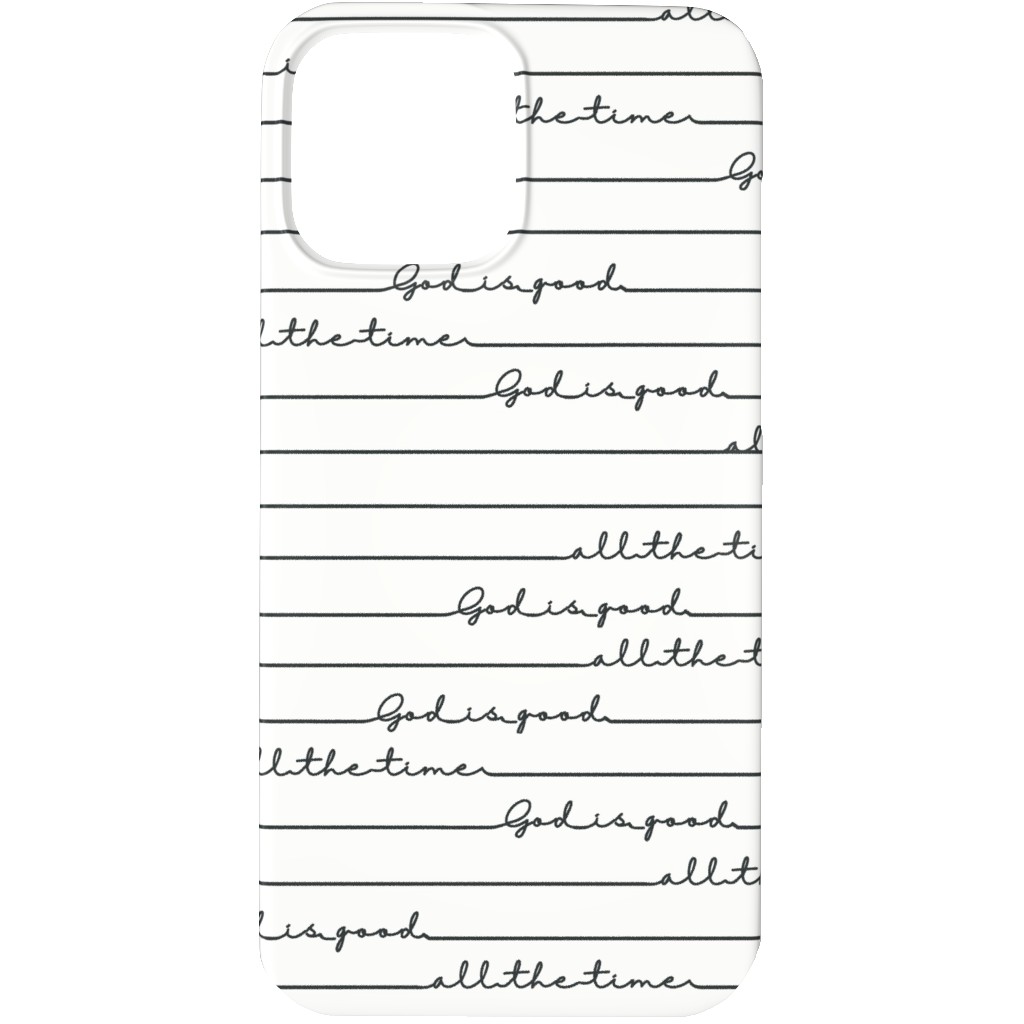 all
the time
God is good
the time
God is good
all the
God is good
all the
God is good
the time
God is good
all
is good
all the time